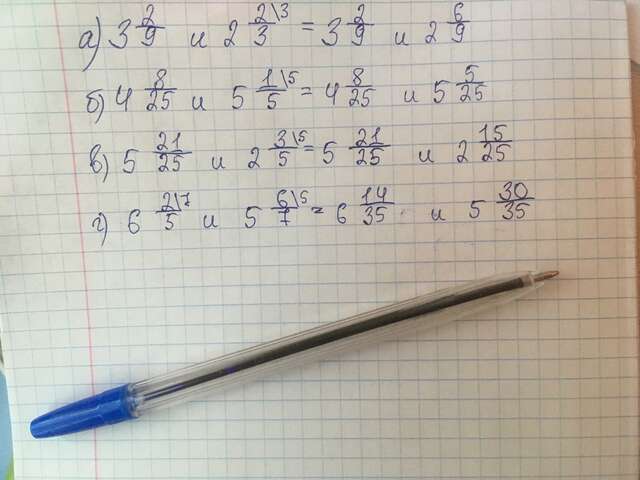 а) 3 2/9 и 2 2\3/3 = 3 2/9 и 2 6/9
б) 4 8/25 и 5 1\5/5 = 4 8/25 и 5 5/25
в) 5 21/25 и 2 3\5/5 = 5 21/25 и 2 15/25
г) 6 2\7/5 и 5 6\5/7 = 6 14/35 и 5 30/35